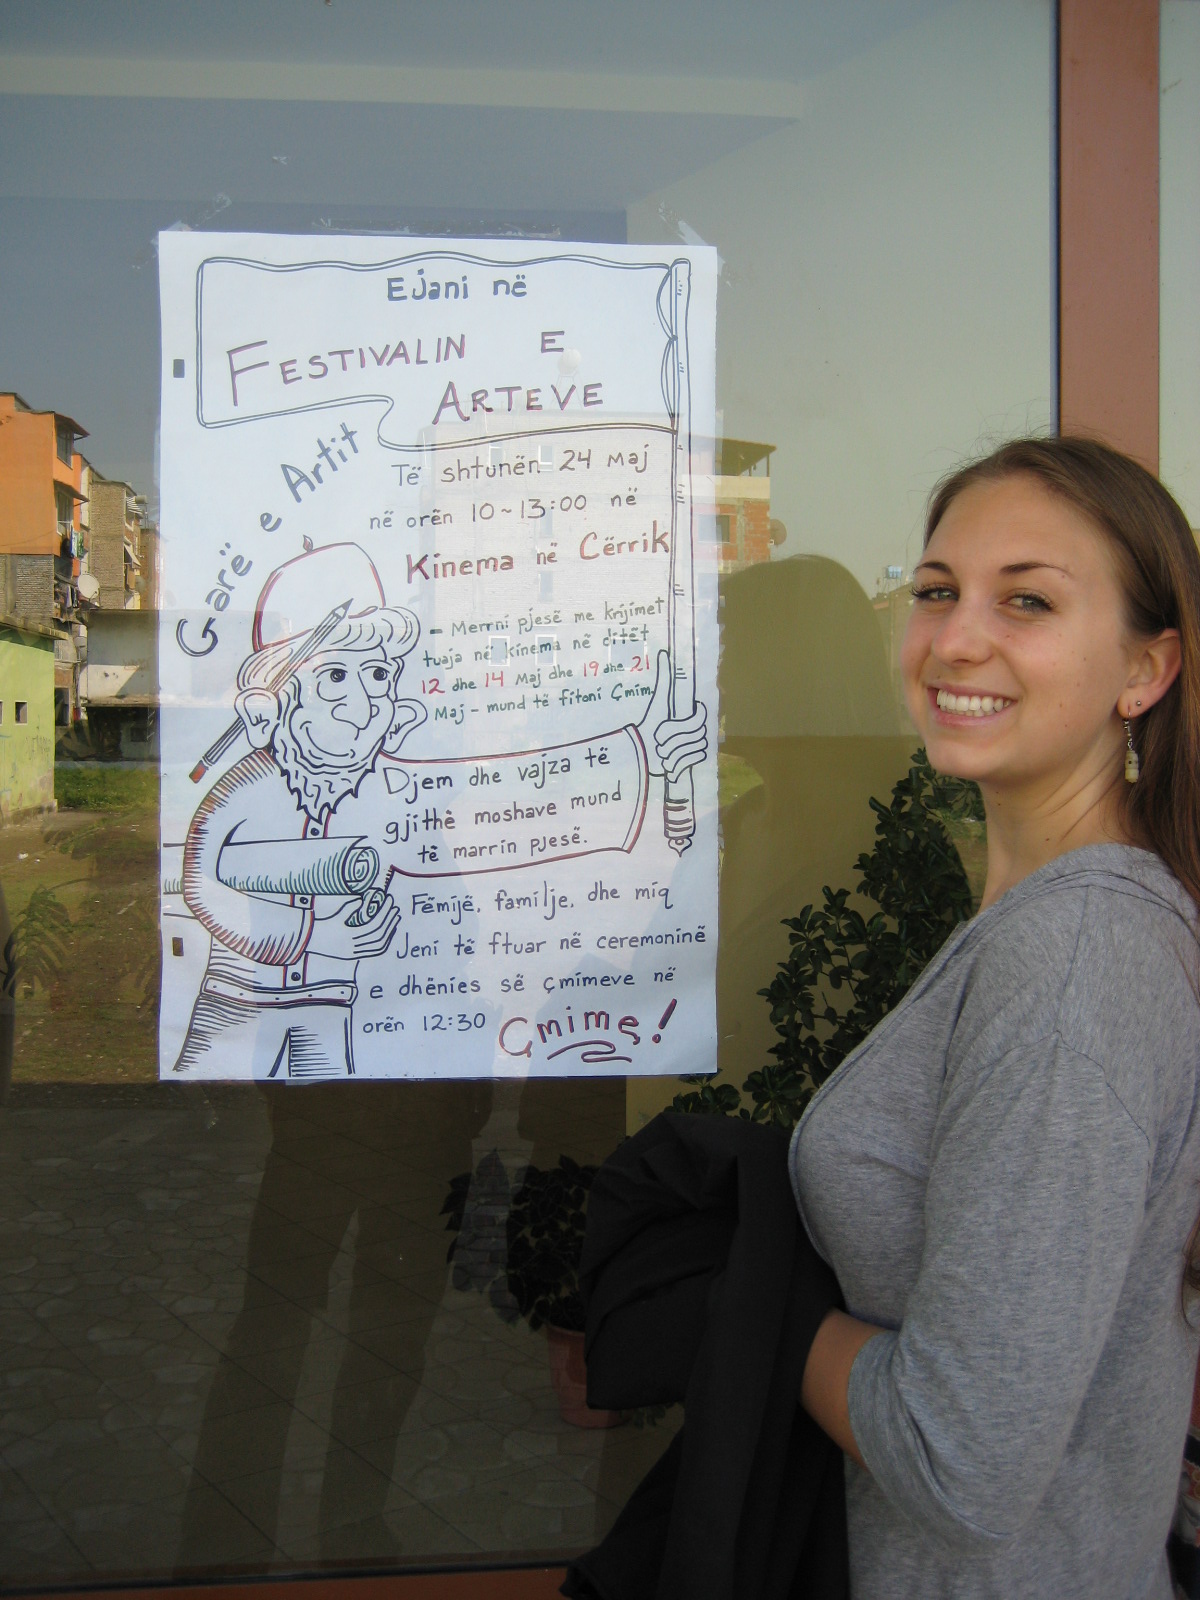 Ejani në
FESTIVALIN E
ARTEVE
Garë e Artit
Të shtunën 24 Maj
në orën 10~13:00 në
Kinema në Cërrik
- Merrni pjesë me krijimet
tuaja në Kinema në ditët
12 dhe 14 Maj dhe 19 dhe 21
Maj - mund të fitoni Çmim.
Djem dhe vajza të
gjithë moshave mund
të marrin pjesë.
Fëmijë, familje, dhe miq
Jeni të ftuar në ceremoninë
e dhënies së çmimeve në
orën 12:30 Çmime!